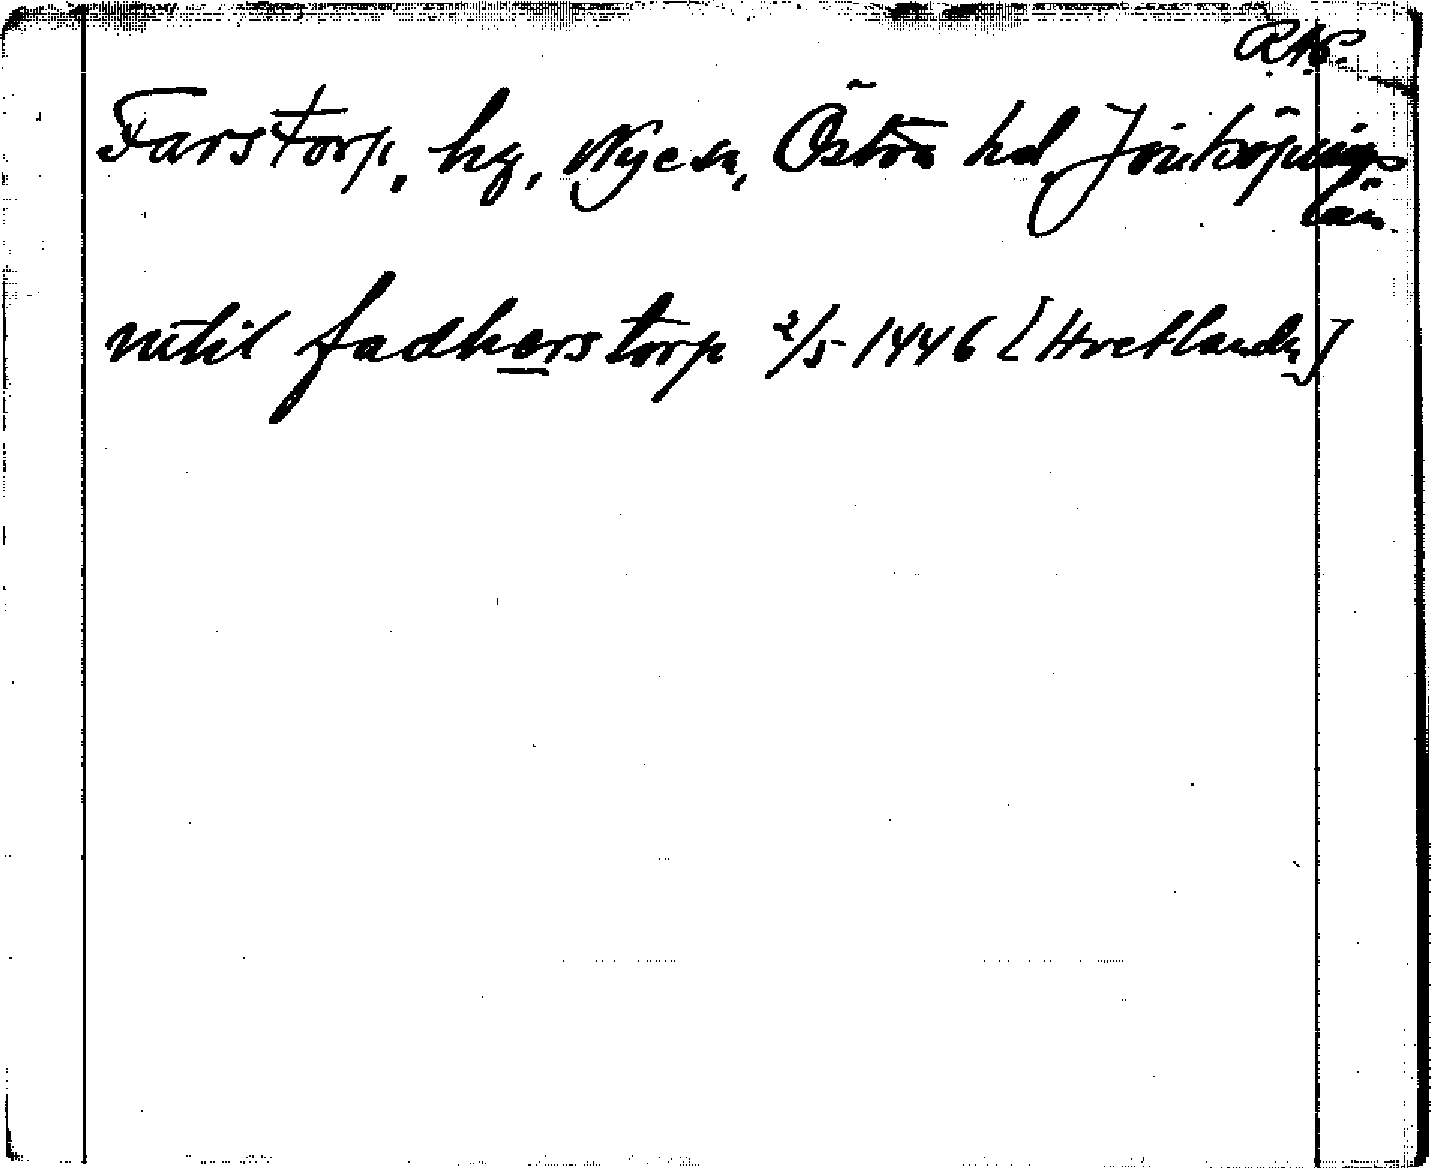 R.A.P.
Farstorp, hg, Nye sn, Östra hd, Jönköpings
län
vthi fadherstorp 2/5 1446 [Hvetlanda]